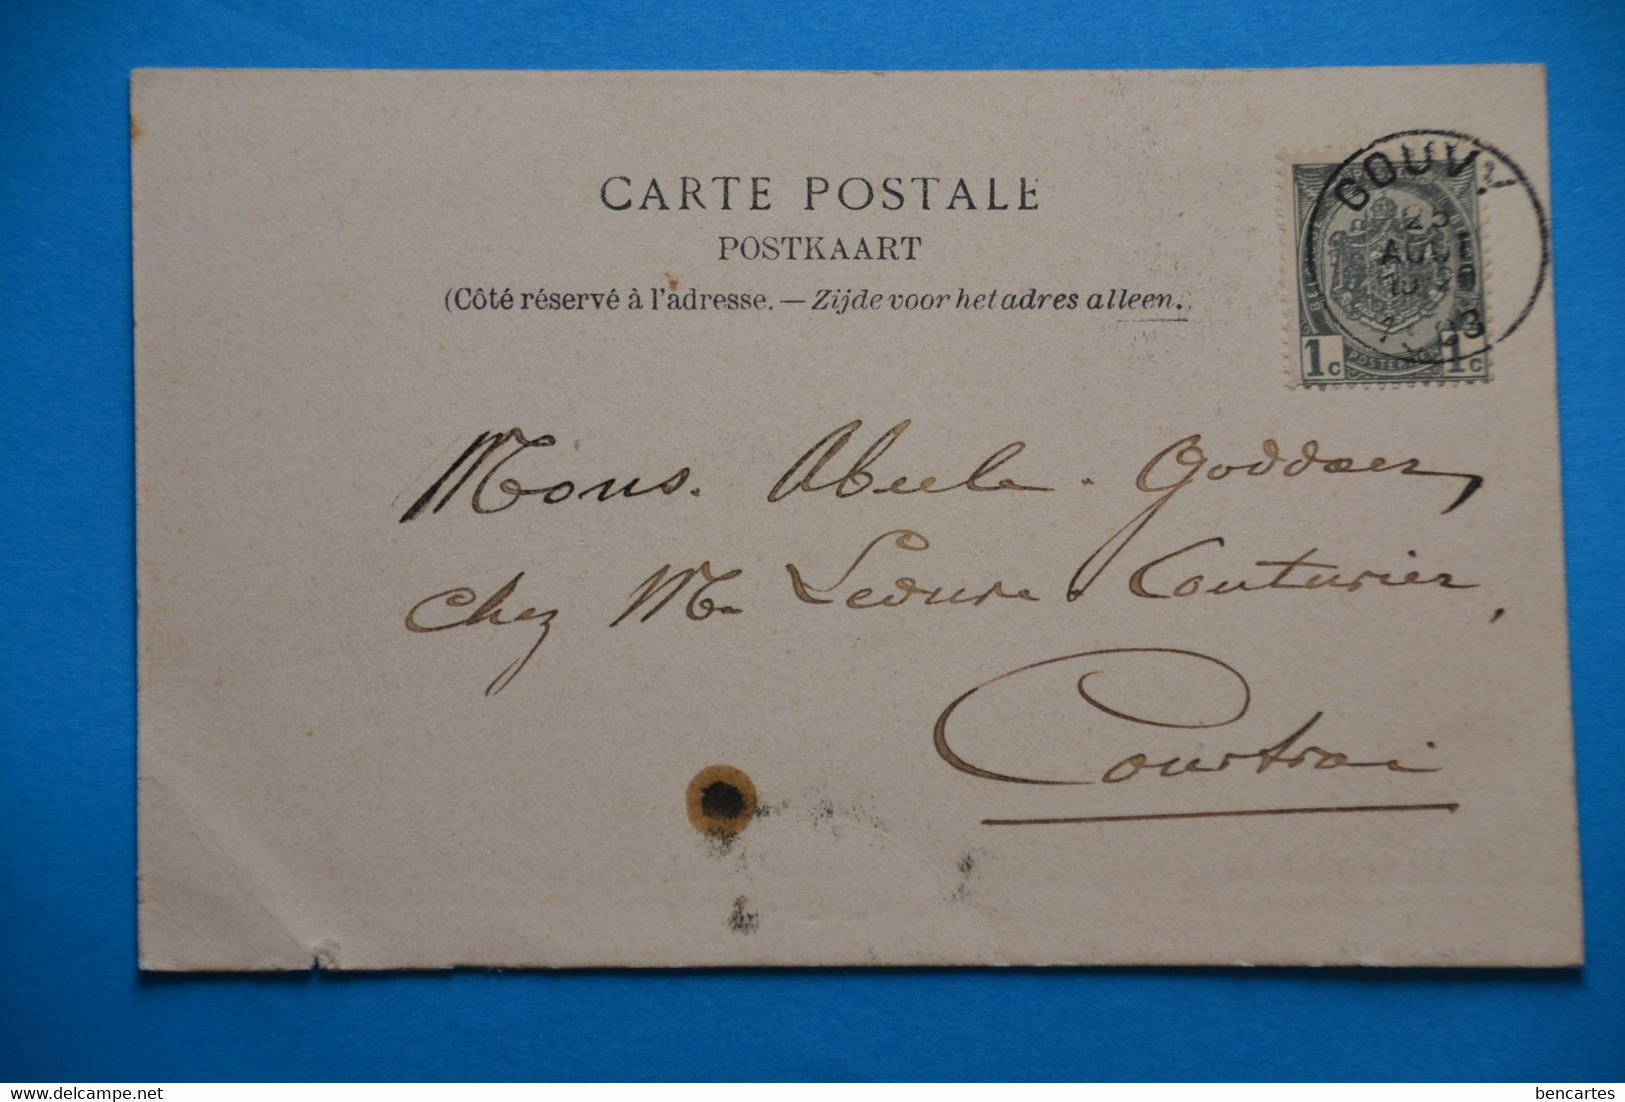 CARTE POSTALE
POSTKAART
(Côté réservé à l'adresse. — Zijde voor het adres alleen.)
GOUVY
25
AOUT
03
1c 1c
Mons. Abeele. Goddaer,
chez Mr Ledure. Couturier,
Courtrai
www.delcampe.net
bencartes